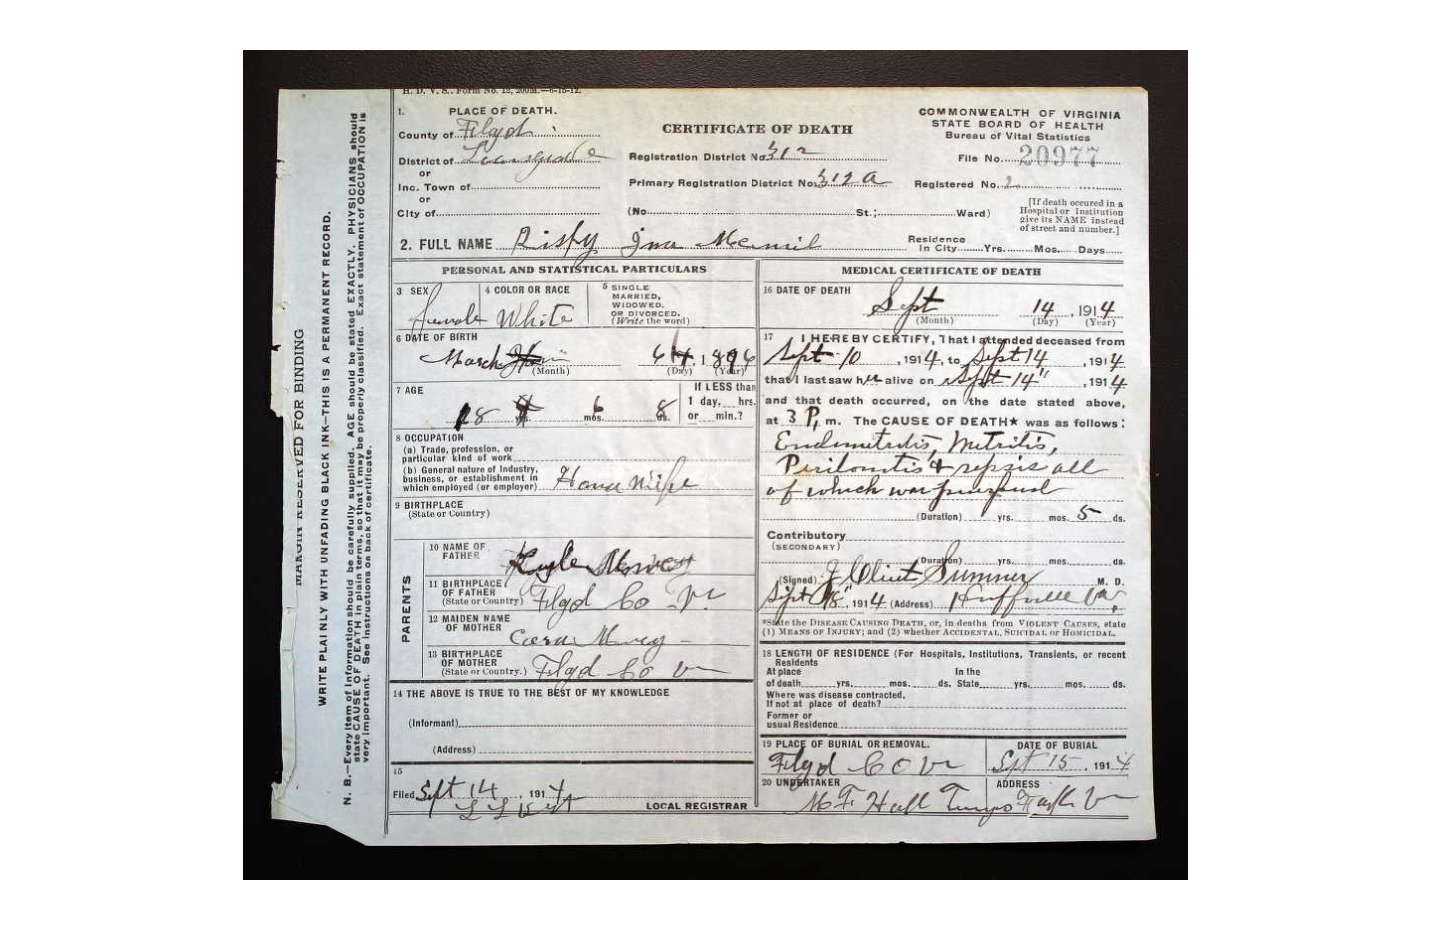 H. D. V. S., Form No. 12, 200M.—6-15-12.
1. PLACE OF DEATH.
County of Floyd
District of
or
Inc. Town of
or
City of
CERTIFICATE OF DEATH
Registration District No. 312
Primary Registration District No. 312 A
(No. St.; Ward)
COMMONWEALTH OF VIRGINIA
STATE BOARD OF HEALTH
Bureau of Vital Statistics
File No. 20977
Registered No. 2
[If death occured in a
Hospital or Institution
give its NAME instead
of street and number.]
2. FULL NAME Ina
Residence
In City Yrs. Mos. Days
PERSONAL AND STATISTICAL PARTICULARS
3 SEX
female
4 COLOR OR RACE
White
5 SINGLE
MARRIED,
WIDOWED,
OR DIVORCED.
(Write the word)
6 DATE OF BIRTH
March 6 , 1896
(Month) (Day) (Year)
7 AGE
18 yrs. 6 mos. 8 ds.
If LESS than
1 day, hrs.
or min.?
8 OCCUPATION
(a) Trade, profession, or
particular kind of work
(b) General nature of Industry,
business, or establishment in
which employed (or employer) House Wife
9 BIRTHPLACE
(State or Country)
PARENTS
10 NAME OF
FATHER
11 BIRTHPLACE
OF FATHER
(State or Country) Floyd Co Va
12 MAIDEN NAME
OF MOTHER
13 BIRTHPLACE
OF MOTHER
(State or Country.) Floyd Co Va
14 THE ABOVE IS TRUE TO THE BEST OF MY KNOWLEDGE
(Informant)
(Address)
15
Filed Sept 14 , 1914
LOCAL REGISTRAR
MEDICAL CERTIFICATE OF DEATH
16 DATE OF DEATH
Sept 14 , 1914
(Month) (Day) (Year)
17 I HEREBY CERTIFY, That I attended deceased from
Sept 10 , 1914, to Sept 14 , 1914
that I last saw her alive on Sept 14" , 1914
and that death occurred, on the date stated above,
at 3 P. m. The CAUSE OF DEATH★ was as follows:
Endometritis, Metritis,
Peritonitis & sepsis all
of which was puerperal
(Duration) yrs. mos. 5 ds.
Contributory
(SECONDARY)
(Duration) yrs. mos. ds.
(Signed) J Clint Sumner M. D.
Sept , 1914 (Address) Huffville Va,
*State the DISEASE CAUSING DEATH, or, in deaths from VIOLENT CAUSES, state
(1) MEANS OF INJURY; and (2) whether ACCIDENTAL, SUICIDAL or HOMICIDAL.
18 LENGTH OF RESIDENCE (For Hospitals, Institutions, Transients, or recent
Residents
At place In the
of death yrs. mos. ds. State yrs. mos. ds.
Where was disease contracted,
If not at place of death?
Former or
usual Residence
19 PLACE OF BURIAL OR REMOVAL.
Floyd Co Va
DATE OF BURIAL
Sept 15 , 1914
20 UNDERTAKER
M. F. Hall
ADDRESS
MARGIN RESERVED FOR BINDING
WRITE PLAINLY WITH UNFADING BLACK INK—THIS IS A PERMANENT RECORD.
N. B.—Every item of information should be carefully supplied. AGE should be stated EXACTLY. PHYSICIANS should
state CAUSE OF DEATH in plain terms, so that it may be properly classified. Exact statement of OCCUPATION is
very important. See instructions on back of certificate.